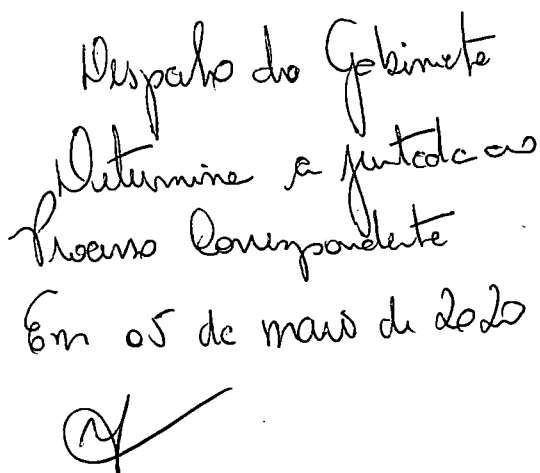 Despacho do Gabinete
Determine a juntada ao
Processo Correspondente
Em 05 de maio de 2020